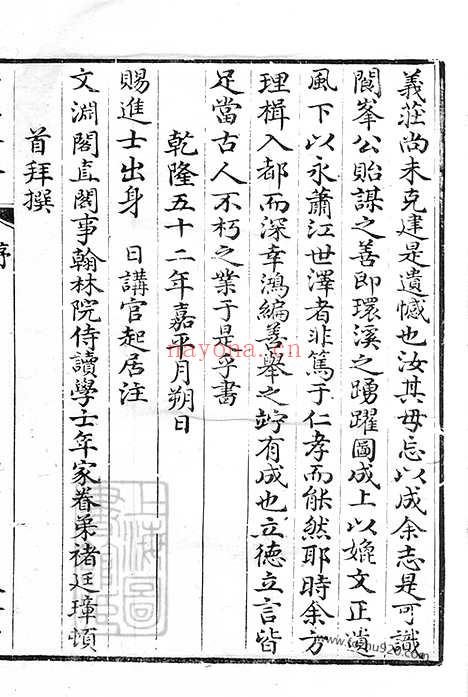 義莊尚未克建是遺憾也汝其毋忘以成余志是可識
閬峯公貽謀之善即環溪之踴躍圖成上以媲文正遺
風下以永蕭江世澤者非篤于仁孝而能然耶時余方
理楫入都而深幸鴻編善舉之竚有成也立德立言皆
足當古人不朽之業于是乎書
乾隆五十二年嘉平月朔日
賜進士出身 日講官起居注
文淵閣直閣事翰林院侍讀學士年家眷弟褚廷璋頓
首拜撰
序
nayona.cn
上海圖書館藏